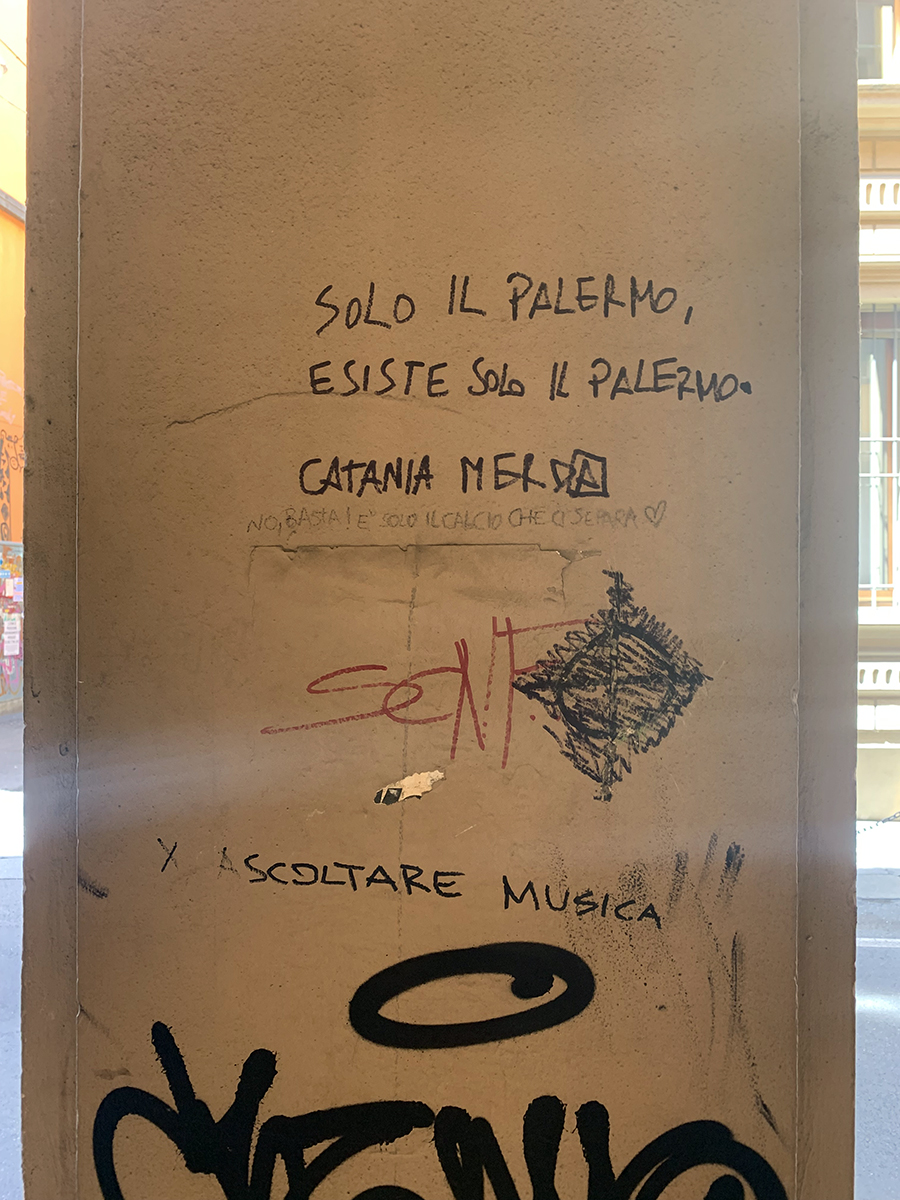 SOLO IL PALERMO,
ESISTE SOLO IL PALERMO.
CATANIA MERDA
NO, BASTA! E' SOLO IL CALCIO CHE CI SEPARA ♡
X ASCOLTARE MUSICA